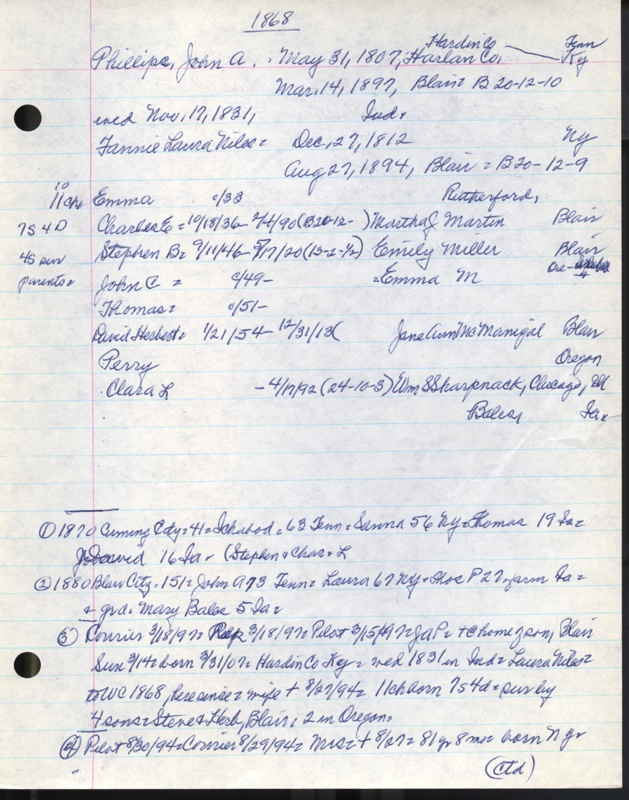 1868
Hardin Co Tenn
Phillips, John A. : May 31, 1807, Harlan Co, Ky
Mar. 14, 1897, Blair = B 20-12-10
wed Nov. 17, 1831, Ind.
Fannie Laura Niloe = Dec. 27, 1812 Ny
Aug 27, 1894, Blair = B20-12-9
10
11 ch Emma c/33 Rutherford,
7S 4D Charles E = 10/18/36- 2/4/90 (B20-12- ) Martha J Martin Blair
4S surv Stephen B = 9/11/46- 5/17/20 (15-2-1/2) Emily Miller Blair
parents = John C = c/49- = Emma M Ore-
Thomas = c/51-
David Herbert = 1/21/54- 12/31/13( Jane Ann McManigal Blair
Perry Oregon
Clara L - 4/17/92 (24-10-3) Wm S Sharpnack, Chicago, Ill
Bales, Ia.
① 1870 Cuming City = 41 = Ichabod = 63 Tenn = Sanna 56 Ny = Thomas 19 Ia =
David 16 Ia. (Stephen & Chas = L
② 1880 Blair City. 151 = John A 73 Tenn = Laura 67 Ny = Thos P 27 farm Ia =
+ gra. Mary Bales 5 Ia =
③ Courier 3/18/97 = Rep 3/18/97 = Pilot 3/15/97 = Ja P = + @ home of son, Blair
Sun 3/14 = born 5/31/07 = Hardin Co Ky = wed 1831 in Ind = Laura Niloe =
to WC 1868, here since = wife + 8/27/94 = 11 ch born 7s 4d = surv by
4 sons = Steve & Herb, Blair; 2 in Oregon =
④ Pilot 8/30/94 = Courier 8/29/94 = Mrs = + 8/27 = 81 yr 8 mo = born N Y
(ctd)